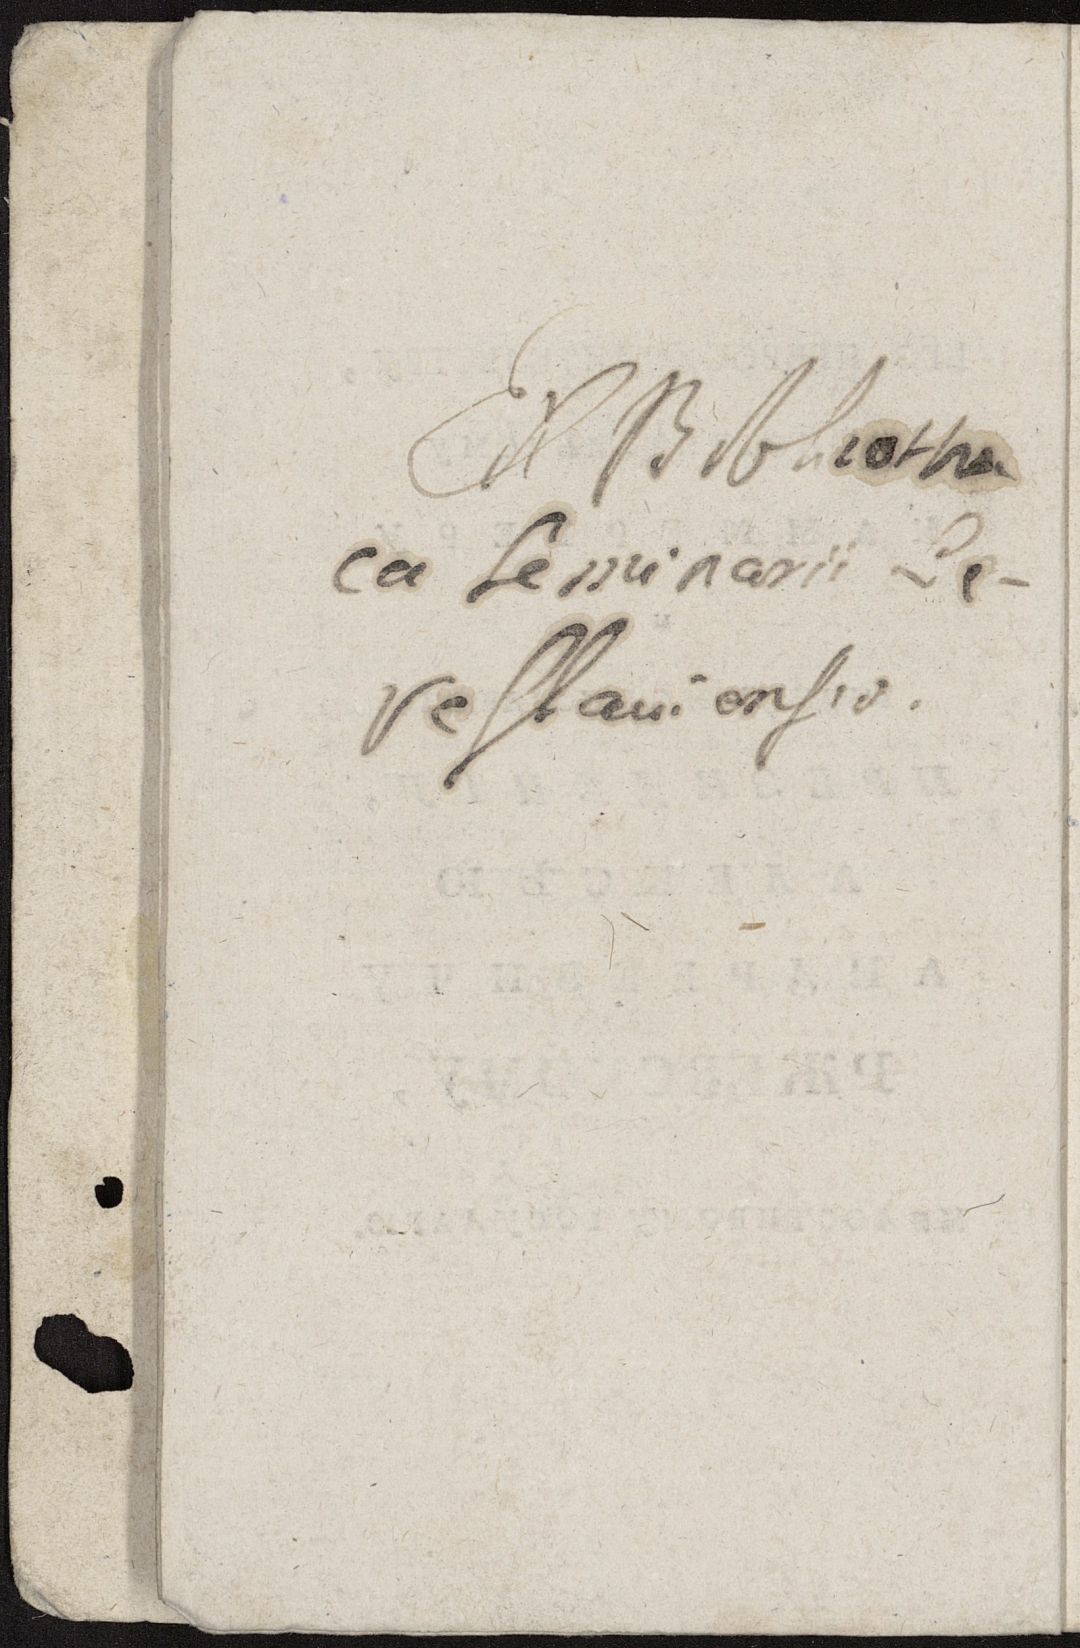 Ex Bibliothe
ca Seminarii Pe-
reſlauienſis.